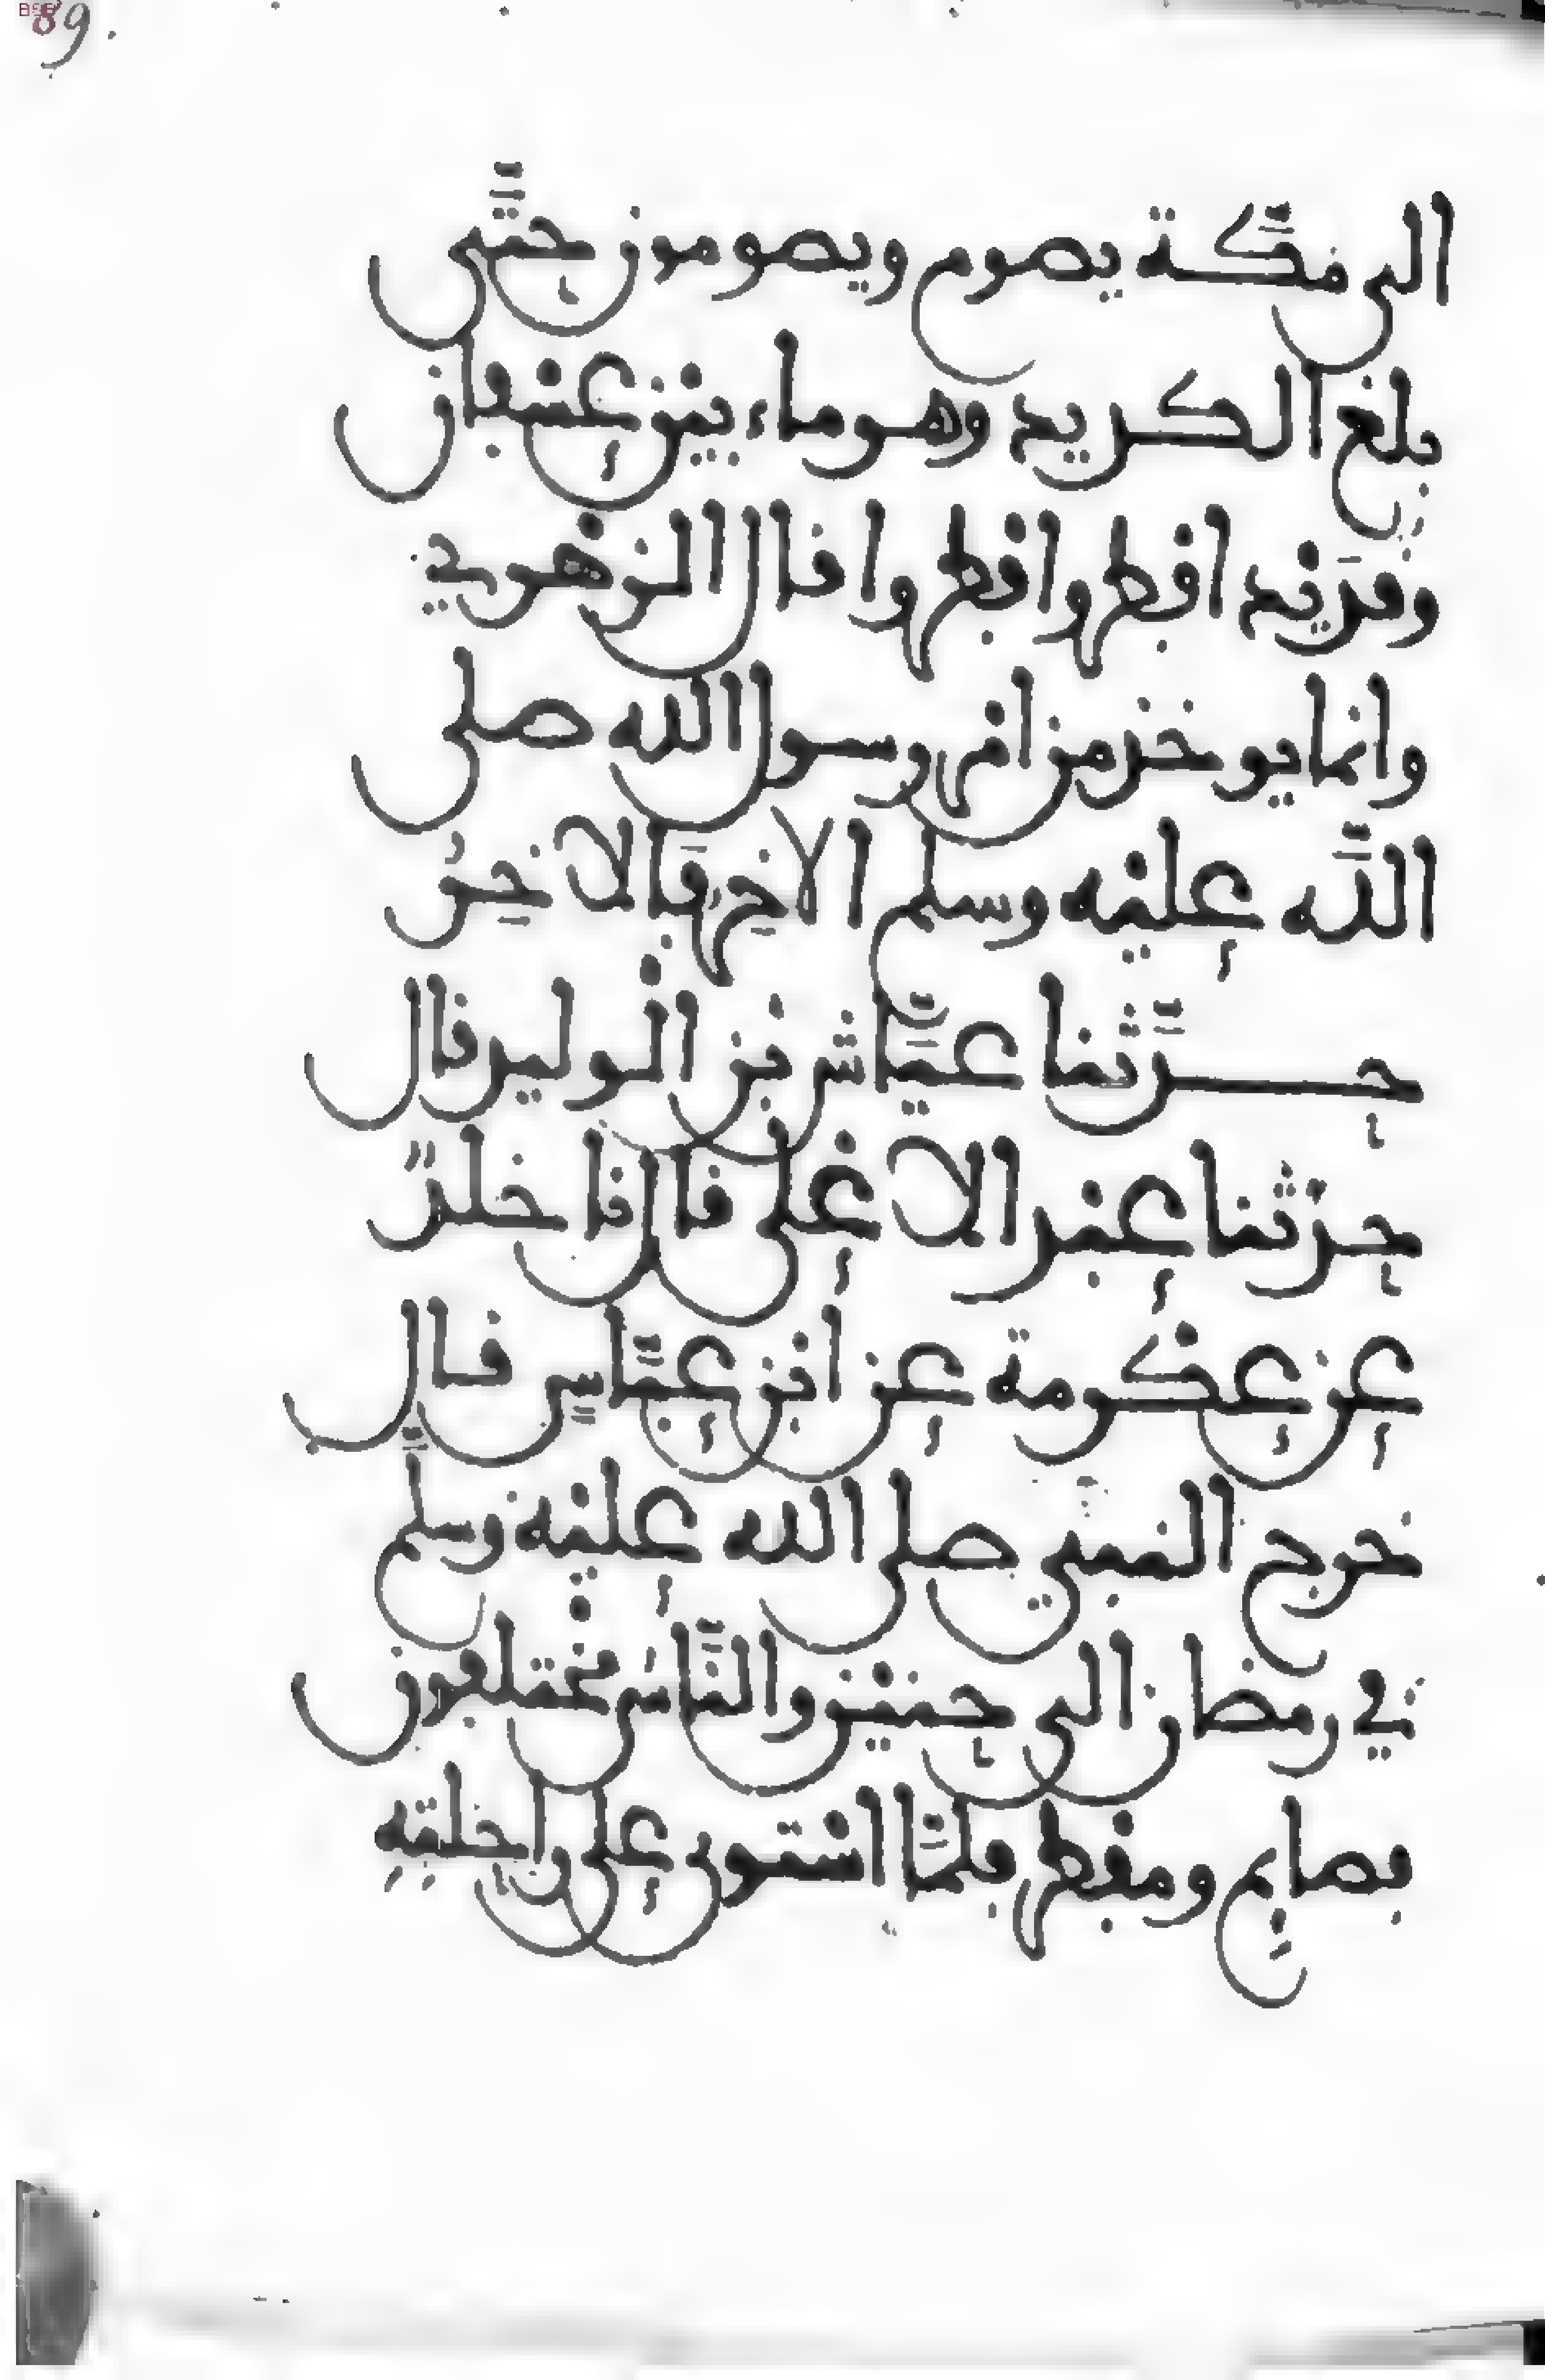 89.
الى مكة يصوم ويصومون حتى
بلغ الكديد وهو ماء بين عسفان
وقديد افطر وافطروا قال الزهري
وانما يوخذ من امر رسول الله صلى
الله عليه وسلم الاخر فالاخر
حدثنا عياش بن الوليد قال
حدثنا عبد الاعلى قال نا خلد
عن عكرمة عن ابن عباس قال
خرج النبي صلى الله عليه وسلم
في رمضان الى حنين والناس مختلفون
فصايم ومفطر فلما استوى على راحلته